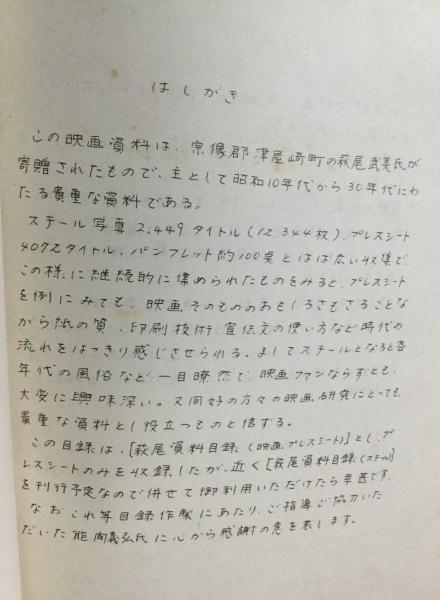 はしがき
この映画資料は、宗像郡津屋崎町の萩尾武美氏が
寄贈されたもので、主として昭和10年代から30年代にわ
たる貴重な資料である。
ステール写真2,449タイトル(12,344枚)、プレスシート
4072タイトル、パンフレット約100点とはば広い収集で、
この様に継続的に集められたものをみると、プレスシート
を例にみても、映画そのもののおもしろさもさることな
がら紙の質、印刷技術、宣伝文の使い方など時代の
流れをはっきり感じさせられる。ましてスチールとなると各
年代の風俗など一目瞭然で、映画ファンならずとも、
大変に興味深い。又同好の方々の映画研究にとっても、
貴重な資料とし役立つものと信ずる。
この目録は、[萩尾資料目録(映画プレスシート)]とし、プ
レスシートのみを収録したが、近く[萩尾資料目録(スチール)]
を刊行予定なので併せて御利用いただけたら幸甚です。
なおこれ等目録作製にあたり、ご指導ご協力いた
だいた能間義弘氏に心から感謝の意を表します。